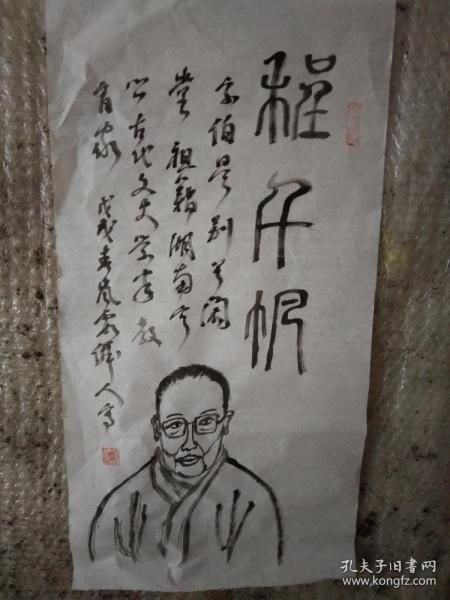 程千帆
字伯昊别号闲
堂 祖籍湖南宁
乡古代文史学家教
育家 戊戌春 人写
孔夫子旧书网
www.kongfz.com